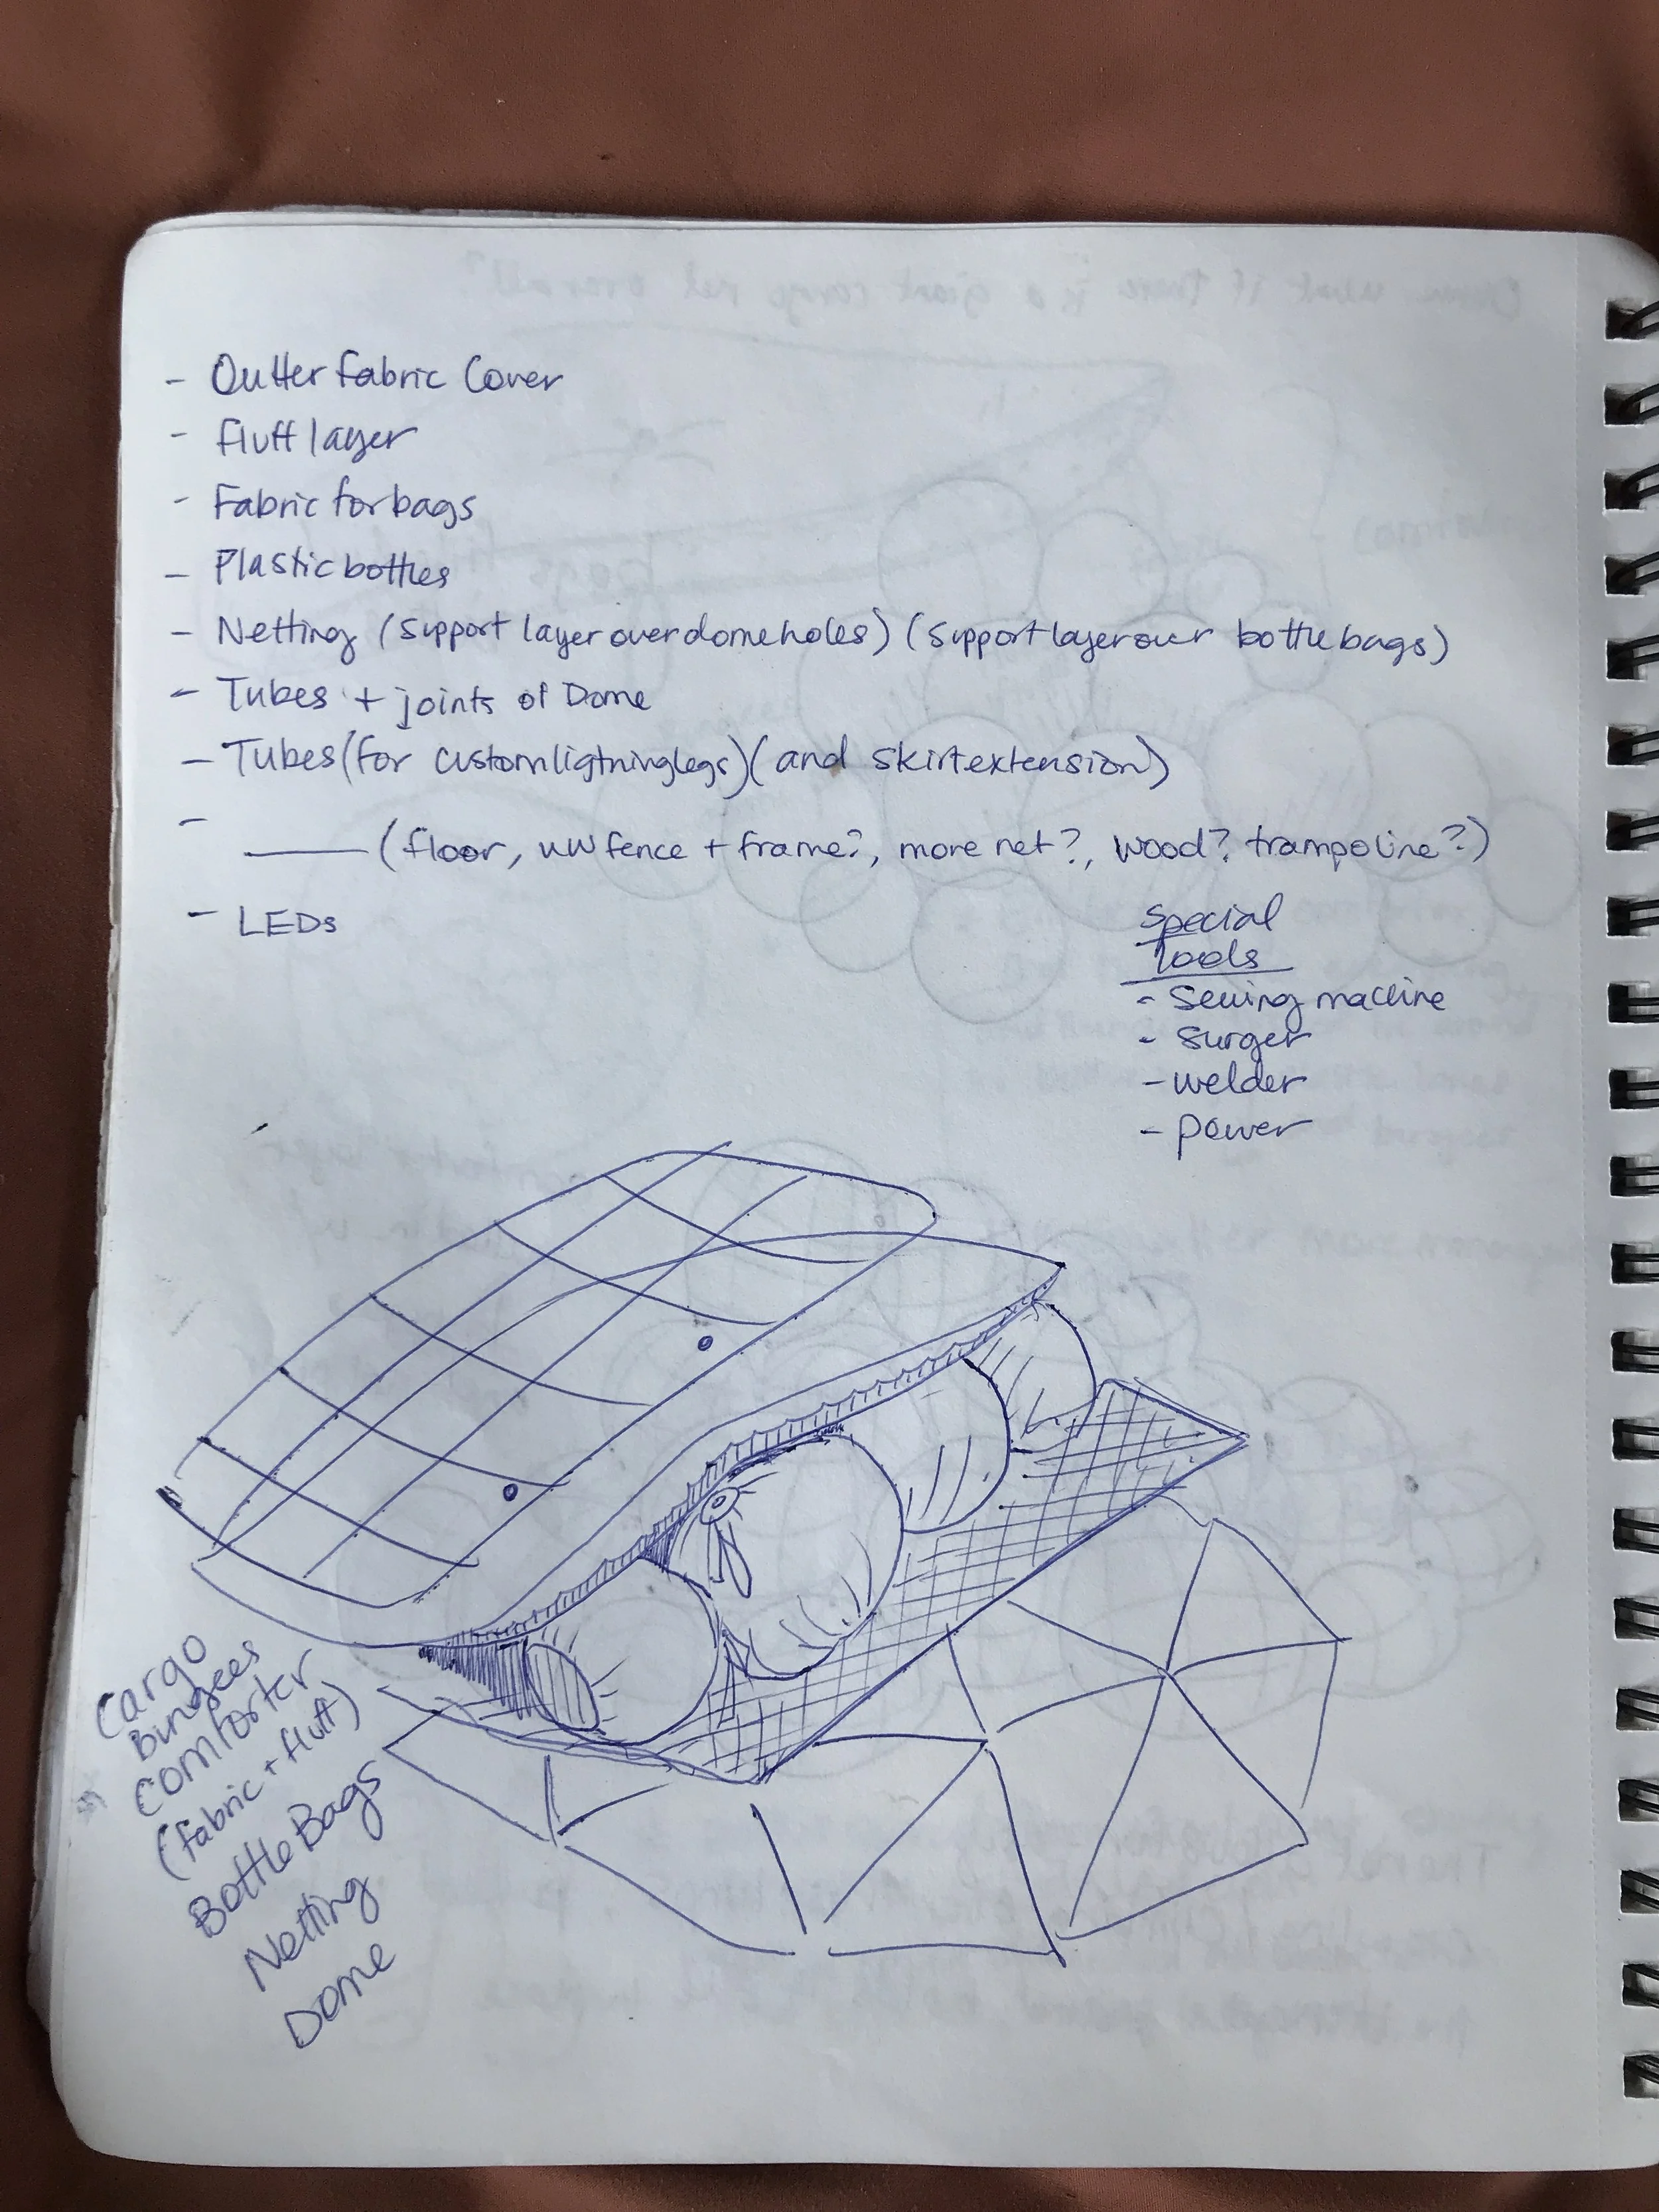 - Outter fabric Cover
- fluff layer
- Fabric for bags
- Plastic bottles
- Netting (support layer over dome holes) (support layer over bottle bags)
- Tubes + joints of Dome
- Tubes (for custom ligtning legs) (and skirt extension)
- ____ (floor, fence + frame?, more net?, wood? trampoline?)
- LEDs
Special
Tools
- Sewing machine
- Surger
- welder
- power
Cargo
Bungees
Comforter
(fabric + fluff)
Bottle Bags
Netting
Dome